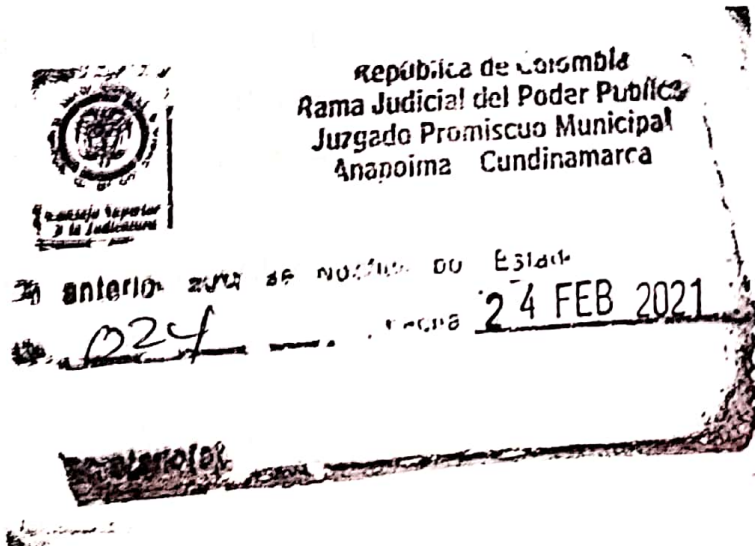 República de Colombia
Rama Judicial del Poder Publico
Juzgado Promiscuo Municipal
Anapoima Cundinamarca
Consejo Superior
de la Judicatura
El anterior auto se Estado
024 Fecha 24 FEB 2021